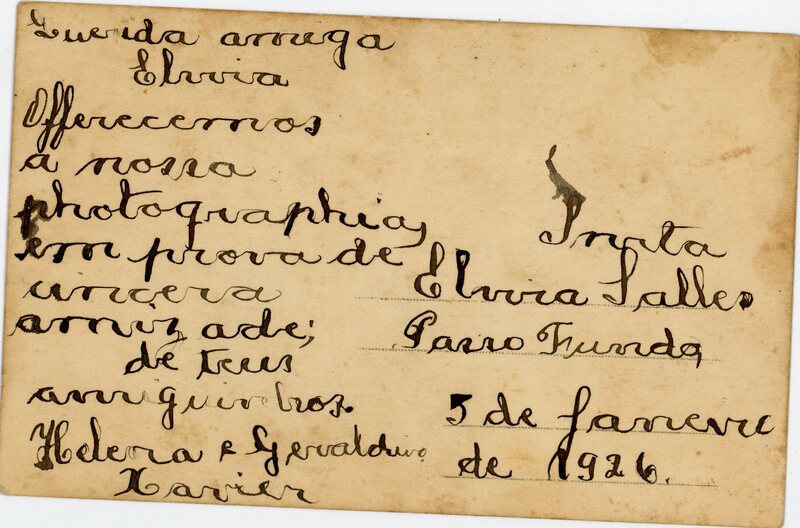 Querida amiga
Elvira
Offerecemos
a nossa
photographia,
em prova de
sincera
amizade;
de teus
amiguinhos.
Helena e Geraldino
Xavier
Snrta
Elvira Salles
Passo Fundo
5 de Janeiro
de 1926.